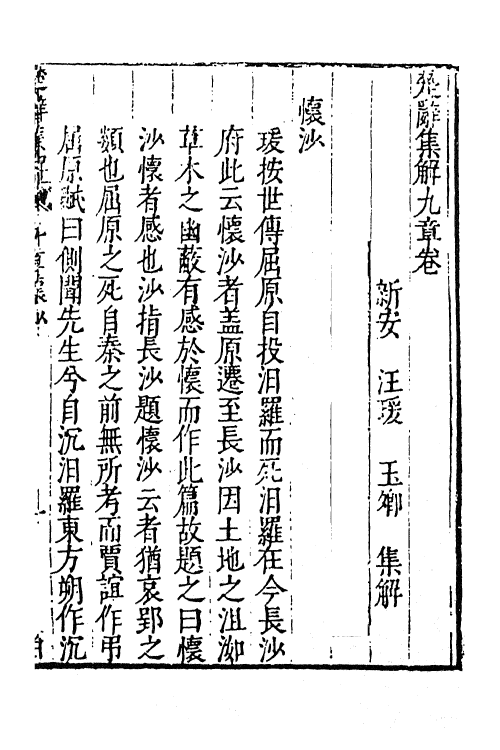 楚辭集解九章卷
新安 汪瑗 玉卿 集解
懷沙
瑗按世傳屈原自投汨羅而死汨羅在今長沙
府此云懷沙者盖原遷至長沙因土地之沮洳
草木之幽蔽有感於懷而作此篇故題之曰懷
沙懷者感也沙指長沙題懷沙云者猶哀郢之
類也屈原之死自秦之前無所考而賈誼作弔
屈原賦曰側聞先生兮自沉汨羅東方朔作沉